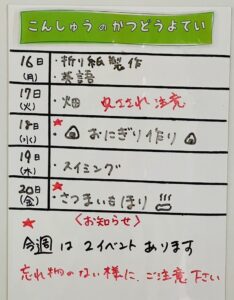 こんしゅうのかつどうよてい
16日(月) ・折り紙製作
・英語
17日(火) ・畑 注意
18日(水) ★ おにぎり作り
19日(木) ・スイミング
20日(金) ★ さつまいもほり
★ 〈お知らせ〉
今週は 2イベント あります
忘れ物のない様に、ご注意下さい